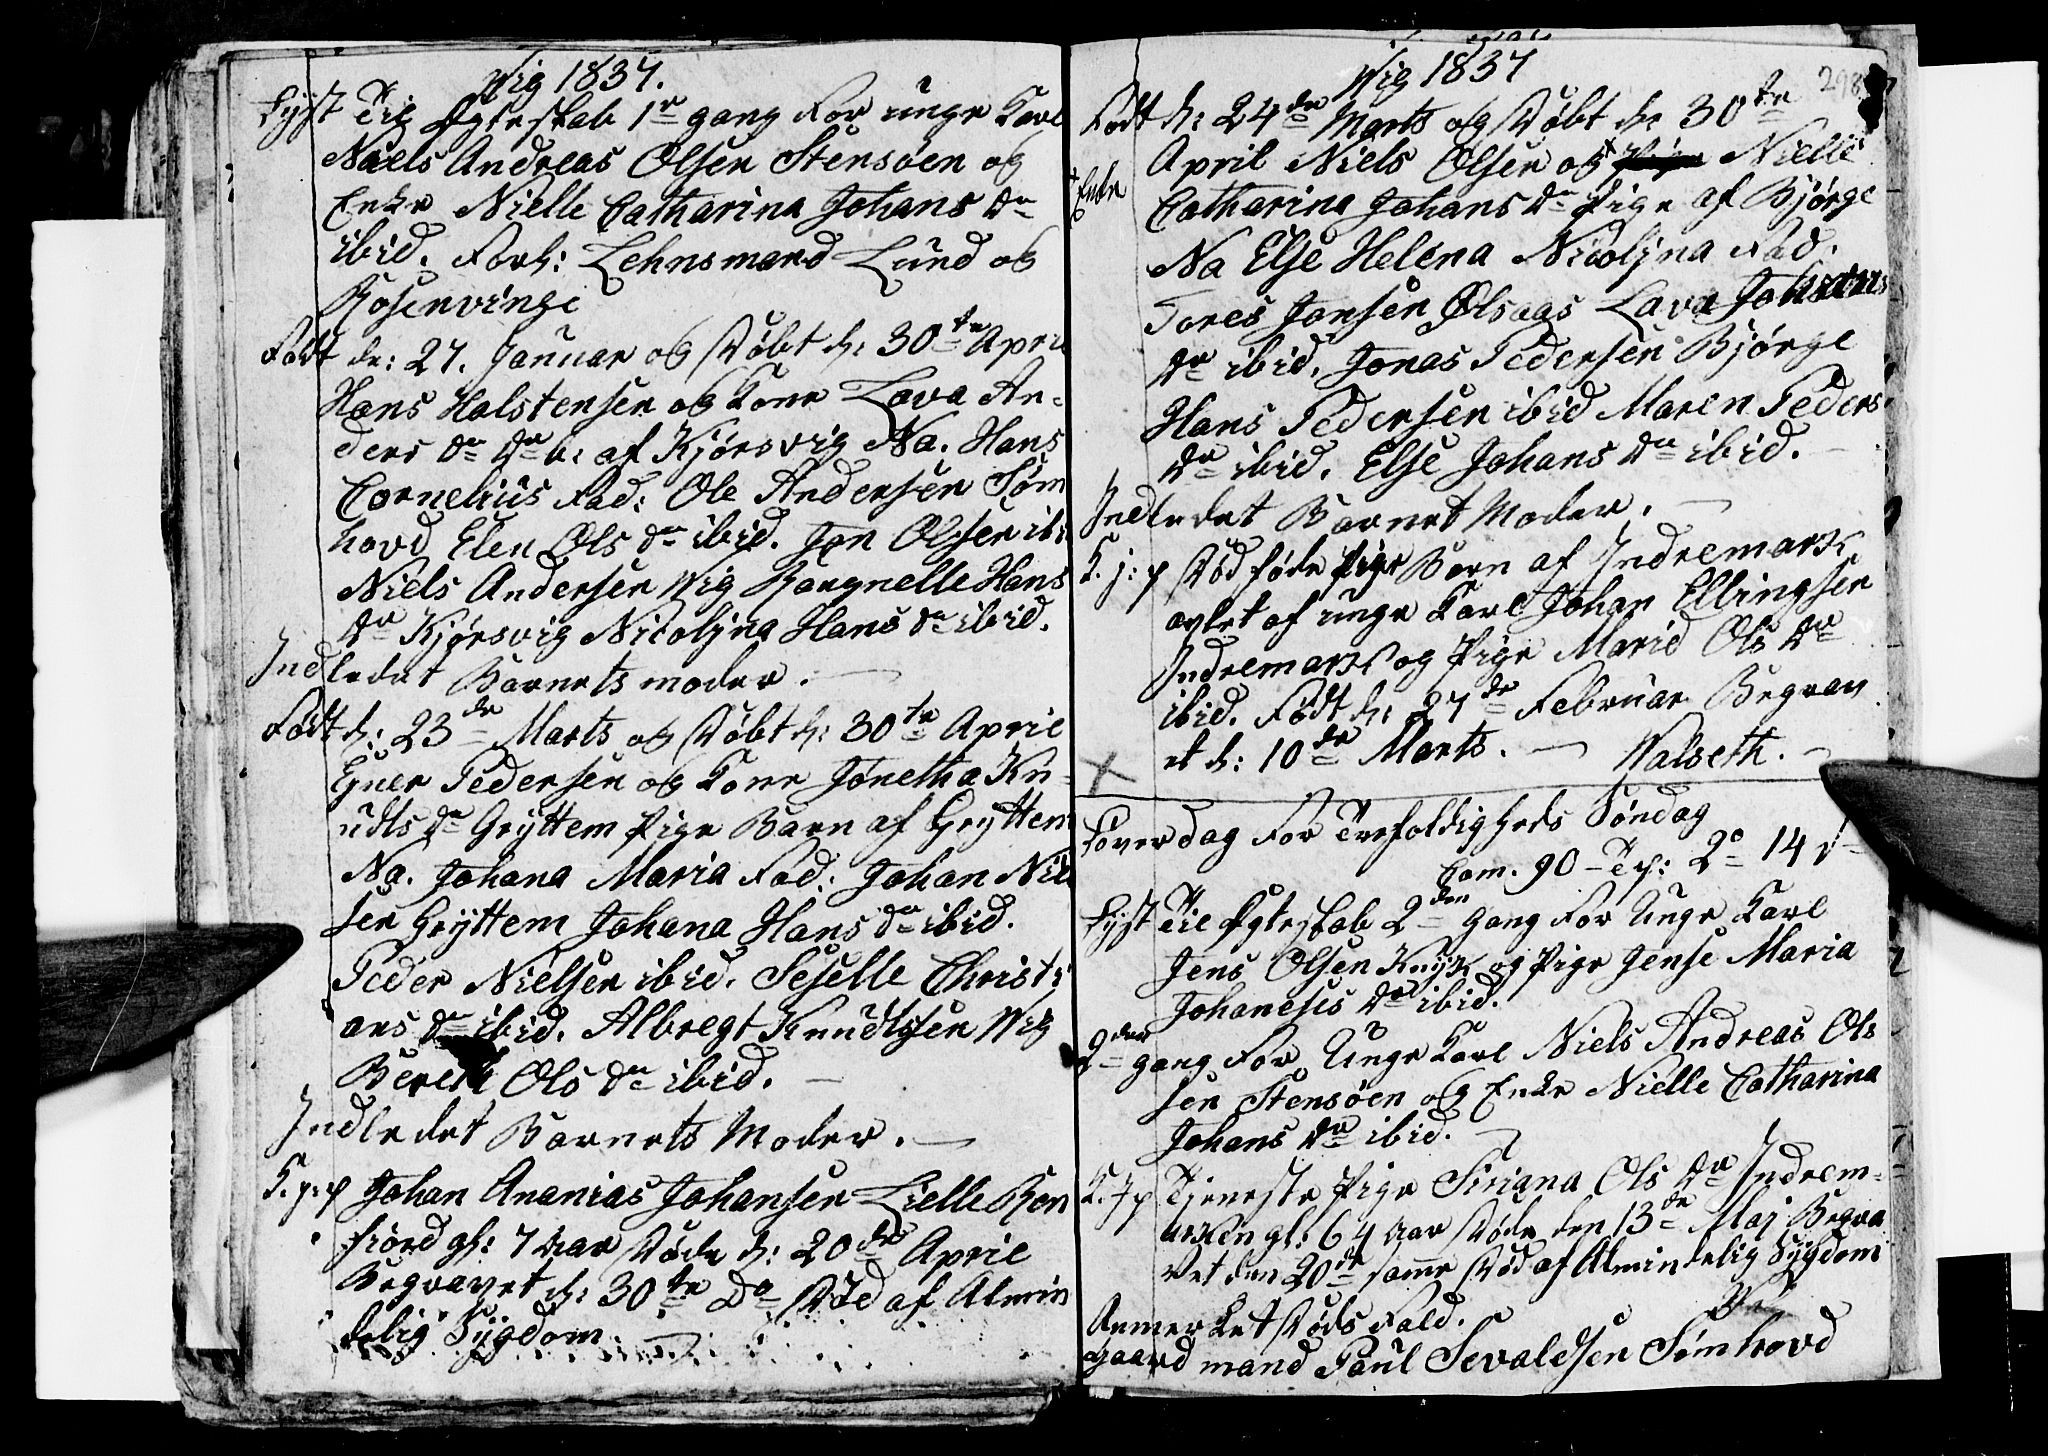 Wig 1837.
Lyst Til Ægteskab 1te gang For unge Karl
Niels Andreas Olsen Stensöen og
Enke Nielle Catharina Johans Dr
ibid. Forl: Lehnsmand Lund og
Rosenvinge
Födt d: 27. Januar og Döbt d: 30te Apri
Hans Halstensen og Kone Lava An-
ders Dr Dr b: af Kjörsvig Na. Hans
Cornelius Fad: Ole Andersen Söm
hovd Elen Ols Dr ibid. Jon Olssen ibi
Niels Andersen Wig Rangnelle Hans
Dr Kjörsvig Nicoljna Hans Dr ibid.
Indledet Barnets moder.
Födt d: 23de Marts og Döbt d: 30te April
Ejner Pedersen og Kone Jonetha Kn-
udts Dr Gryttem Pige Barn af Gryttem
Na. Johana Maria Fad: Johan Niel
sen Gryttem Johana Hans Dr ibid.
Peder Nielsen ibid. Seselle Christi
ans Dr ibid. Albregt Knudtssen Wig
Bereth Ols Dr ibid.
Indledet Barnets Moder.
K. j: p Johan Ananias Johansen Lielle Ron
fiord gl: 7 Aar Döde d: 20de April
Begravet d: 30te Do Död af Almin
delig Sÿgdom.
Wig 1837
298
Födt d: 24de Marts og Döbt d: 30te
April Niels Olsen og Nielle
+ Enke
Catharina Johans Dr Pige af Björge
Na Else Helena Nicoljna Fad.
Tores Jonsen Olsaas Lava Johans
Dr ibid. Jonas Pedersen Björge
Hans Pedersen ibid Maren Peders
Dr ibid. Else Johans Dr ibid.
Indledet Barnet Moder.
K. j: p Död föde Pige Barn af Indremark
avlet af unge Karl Johan Ellingsen
Indremark og Pige Marid Ols Dr
ibid. Födt d: 27de Februar Begrav
et d: 10de Marts. Walseth.
Löverdag For Trefoldigheds Söndag
Com. 90 - Tp: 2o 14
Lyst Til Ægteskab 2den Gang For Unge Karl
Jens Olsen Knÿk og Pige Jense Maria
Johaneses Dr ibid.
2den gang For Unge Karl Niels Andreas Ols
sen Stensöen og Enke Nielle Catharina
Johans Dr ibid.
K. J p Tjeneste Pige Siriana Ols Dr Indrem-
arken gl: 64 aar Döde den 13de Maj Begra
vet den 20de samme Död af Almindelig Sÿgdom
Anmerket Döds Fald.
Gaardmand Paul Sevaldsen Sömhovd